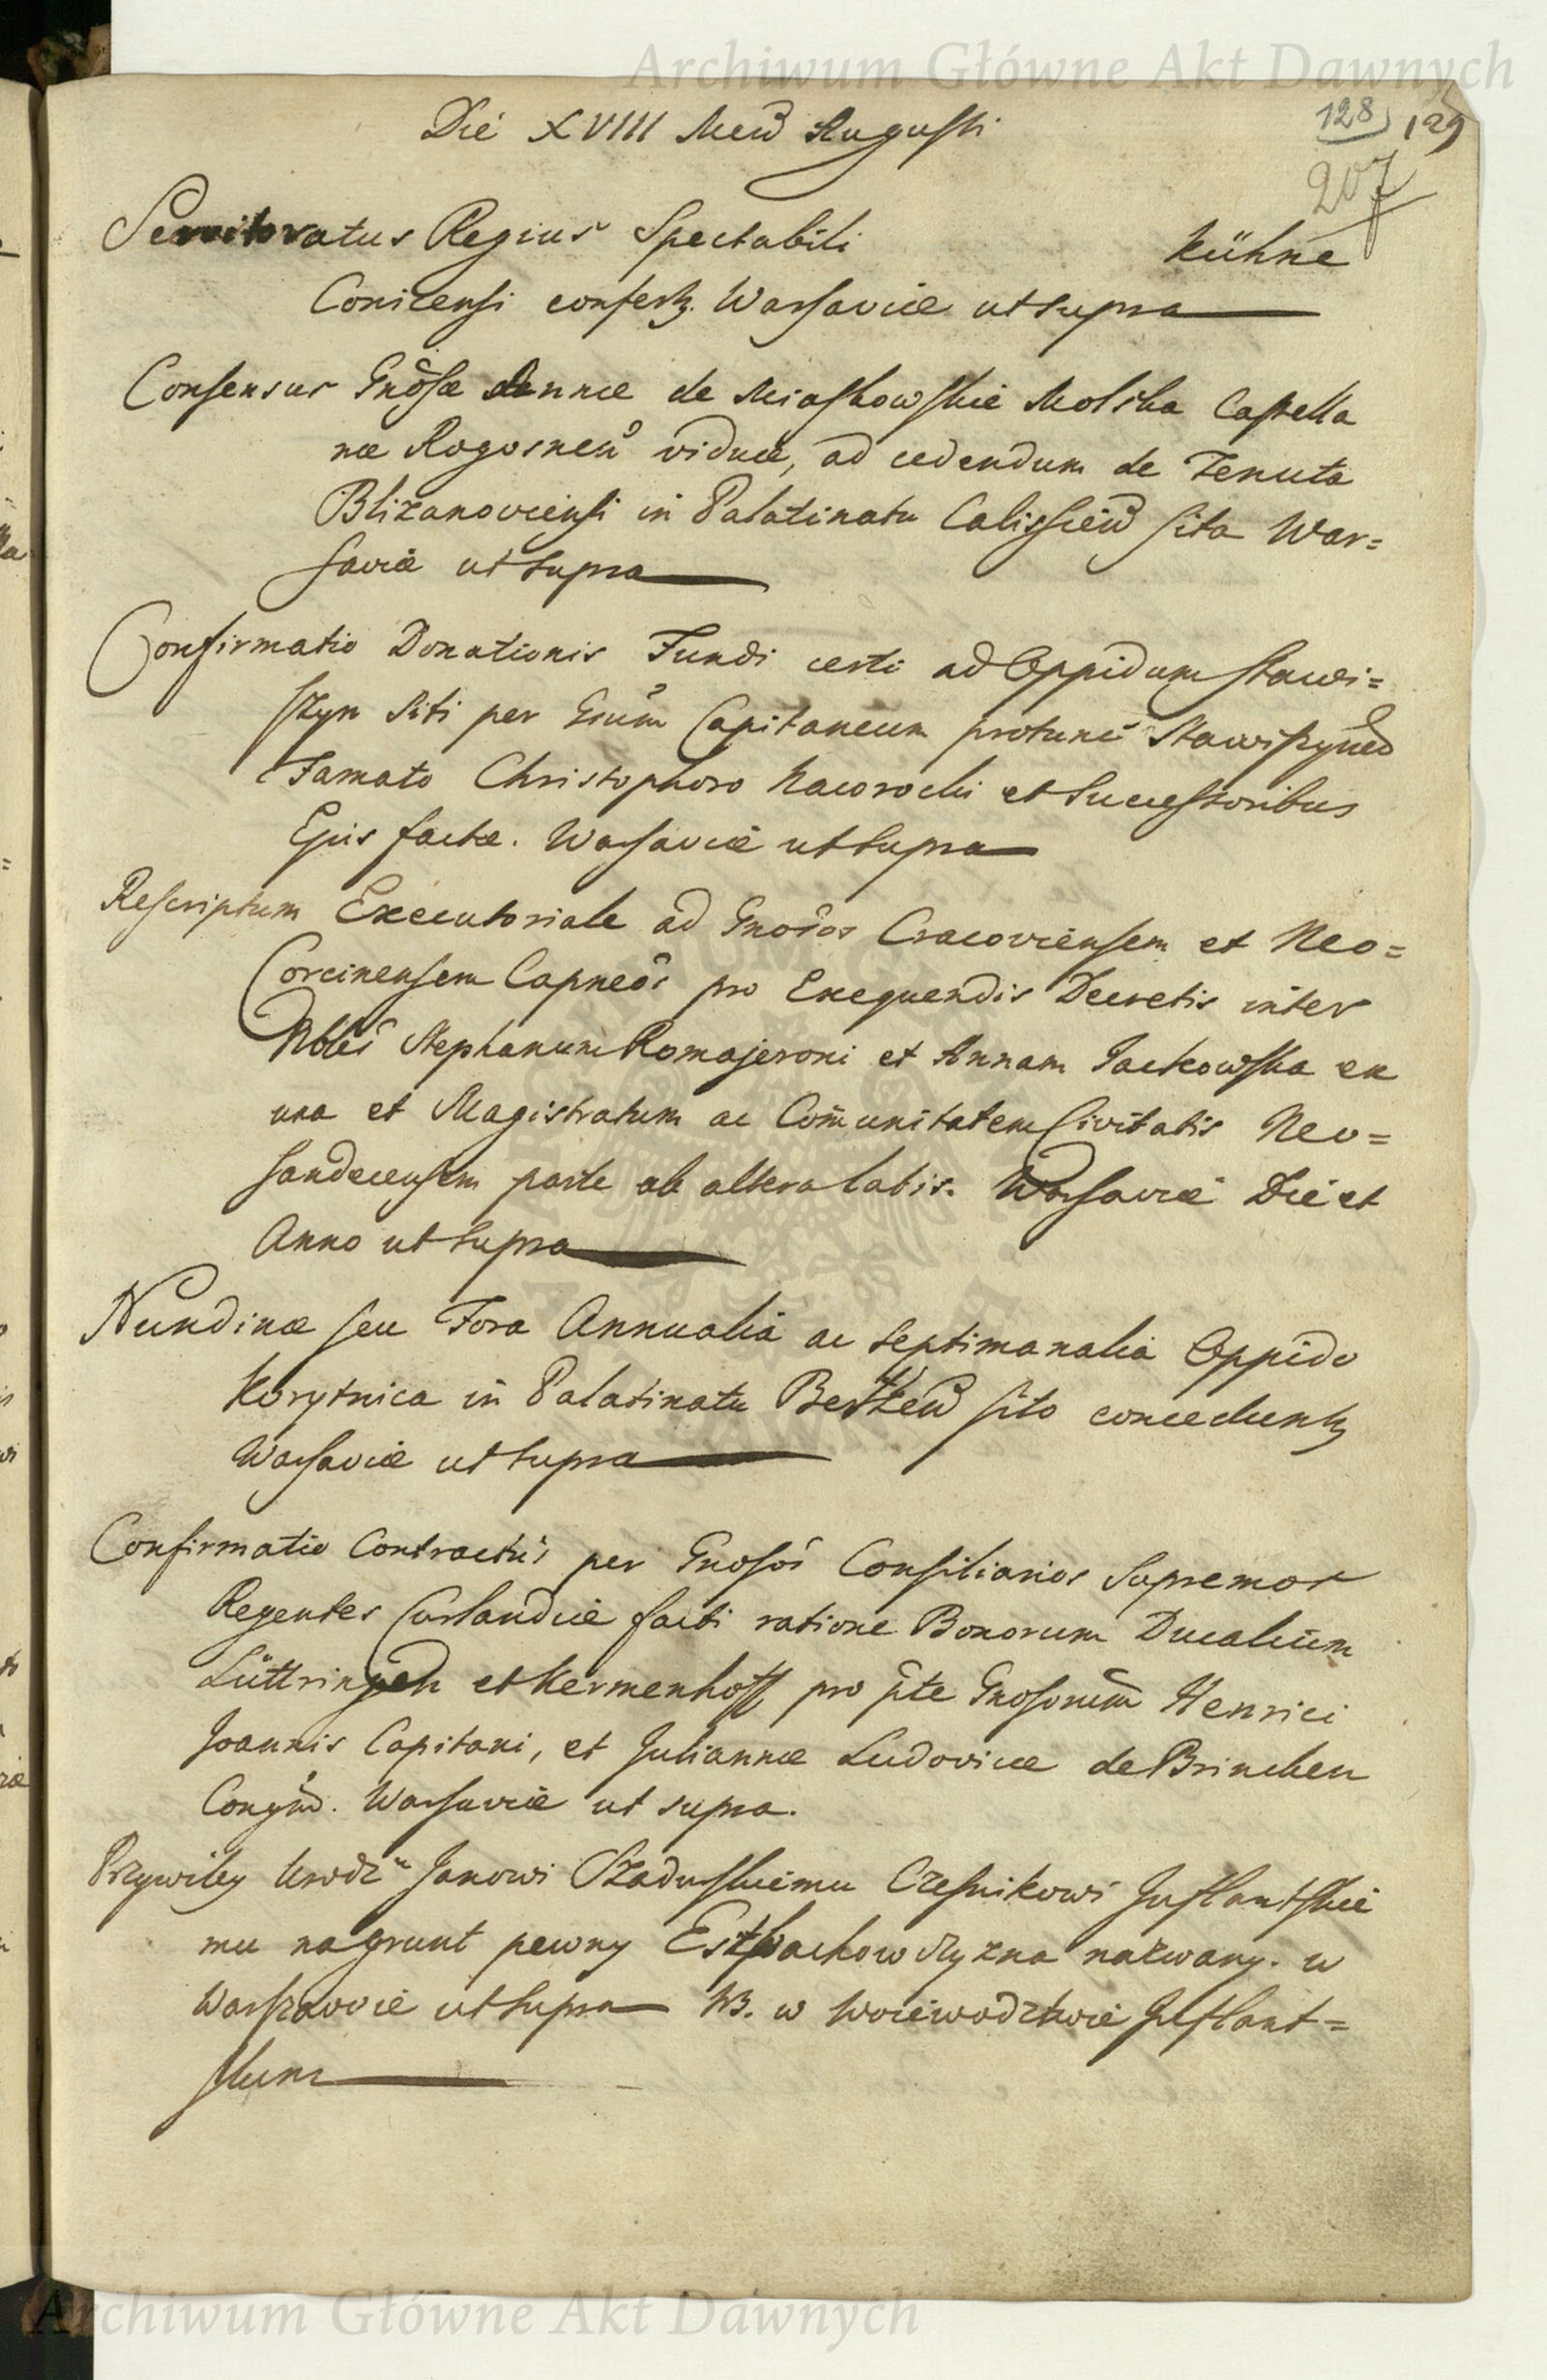 Archiwum Główne Akt Dawnych
Die XVIII Mens Augusti
128 129
207
Servitoratus Regius Spectabili Kühne
Conicensi confertr. Warsaviæ ut supra
Consensus Gnosæ Annæ de Miaskowskie Molska Castella
næ Rogosnens viduæ, ad cedendum de Tenuta
Blizanoviensi in Palatinatu Calissien sita War=
saviæ ut supra
Confirmatio Donationis Fundi certi ad Oppidum Stawi=
szyn Siti per Gnum Capitaneum protunc Stawiszynen
Famato Christophoro Naworocki et Successoribus
Ejus factæ. Warsaviæ ut supra
Rescriptum Executoriale ad Gnosos Cracoviensem et Neo=
Corcinensem Capneos pro Exequendis Decretis inter
Nobles Stephanum Romajeroni et Annam Jackowska ex
una et Magistratum ac Comunitatem Civitatis Neo=
Sandecensem parte ab altera latis. Warsaviæ Die et
Anno ut supra
Nundinæ seu Fora Annualia ac Septimanalia Oppido
Korytnica in Palatinatu Belzen sito conceduntr
Warsaviæ ut supra
Confirmatio Contractus per Gnosos Consiliarios Supremos
Regentes Curlandiæ facti ratione Bonorum Ducalium
Lüttringen et Kermenhoff pro pte Gnosorum Henrici
Joannis Capitani, et Juliannæ Ludovicæ de Brincken
Congum. Warsaviæ ut supra.
Przywiley Urodz. Janowi Szadurskiemu Czesnikowi Inflantskie
mu na grunt pewny nazwany. w
Warszawie ut supra NB. w Woiewodztwie Inflant=
skim
Archiwum Główne Akt Dawnych